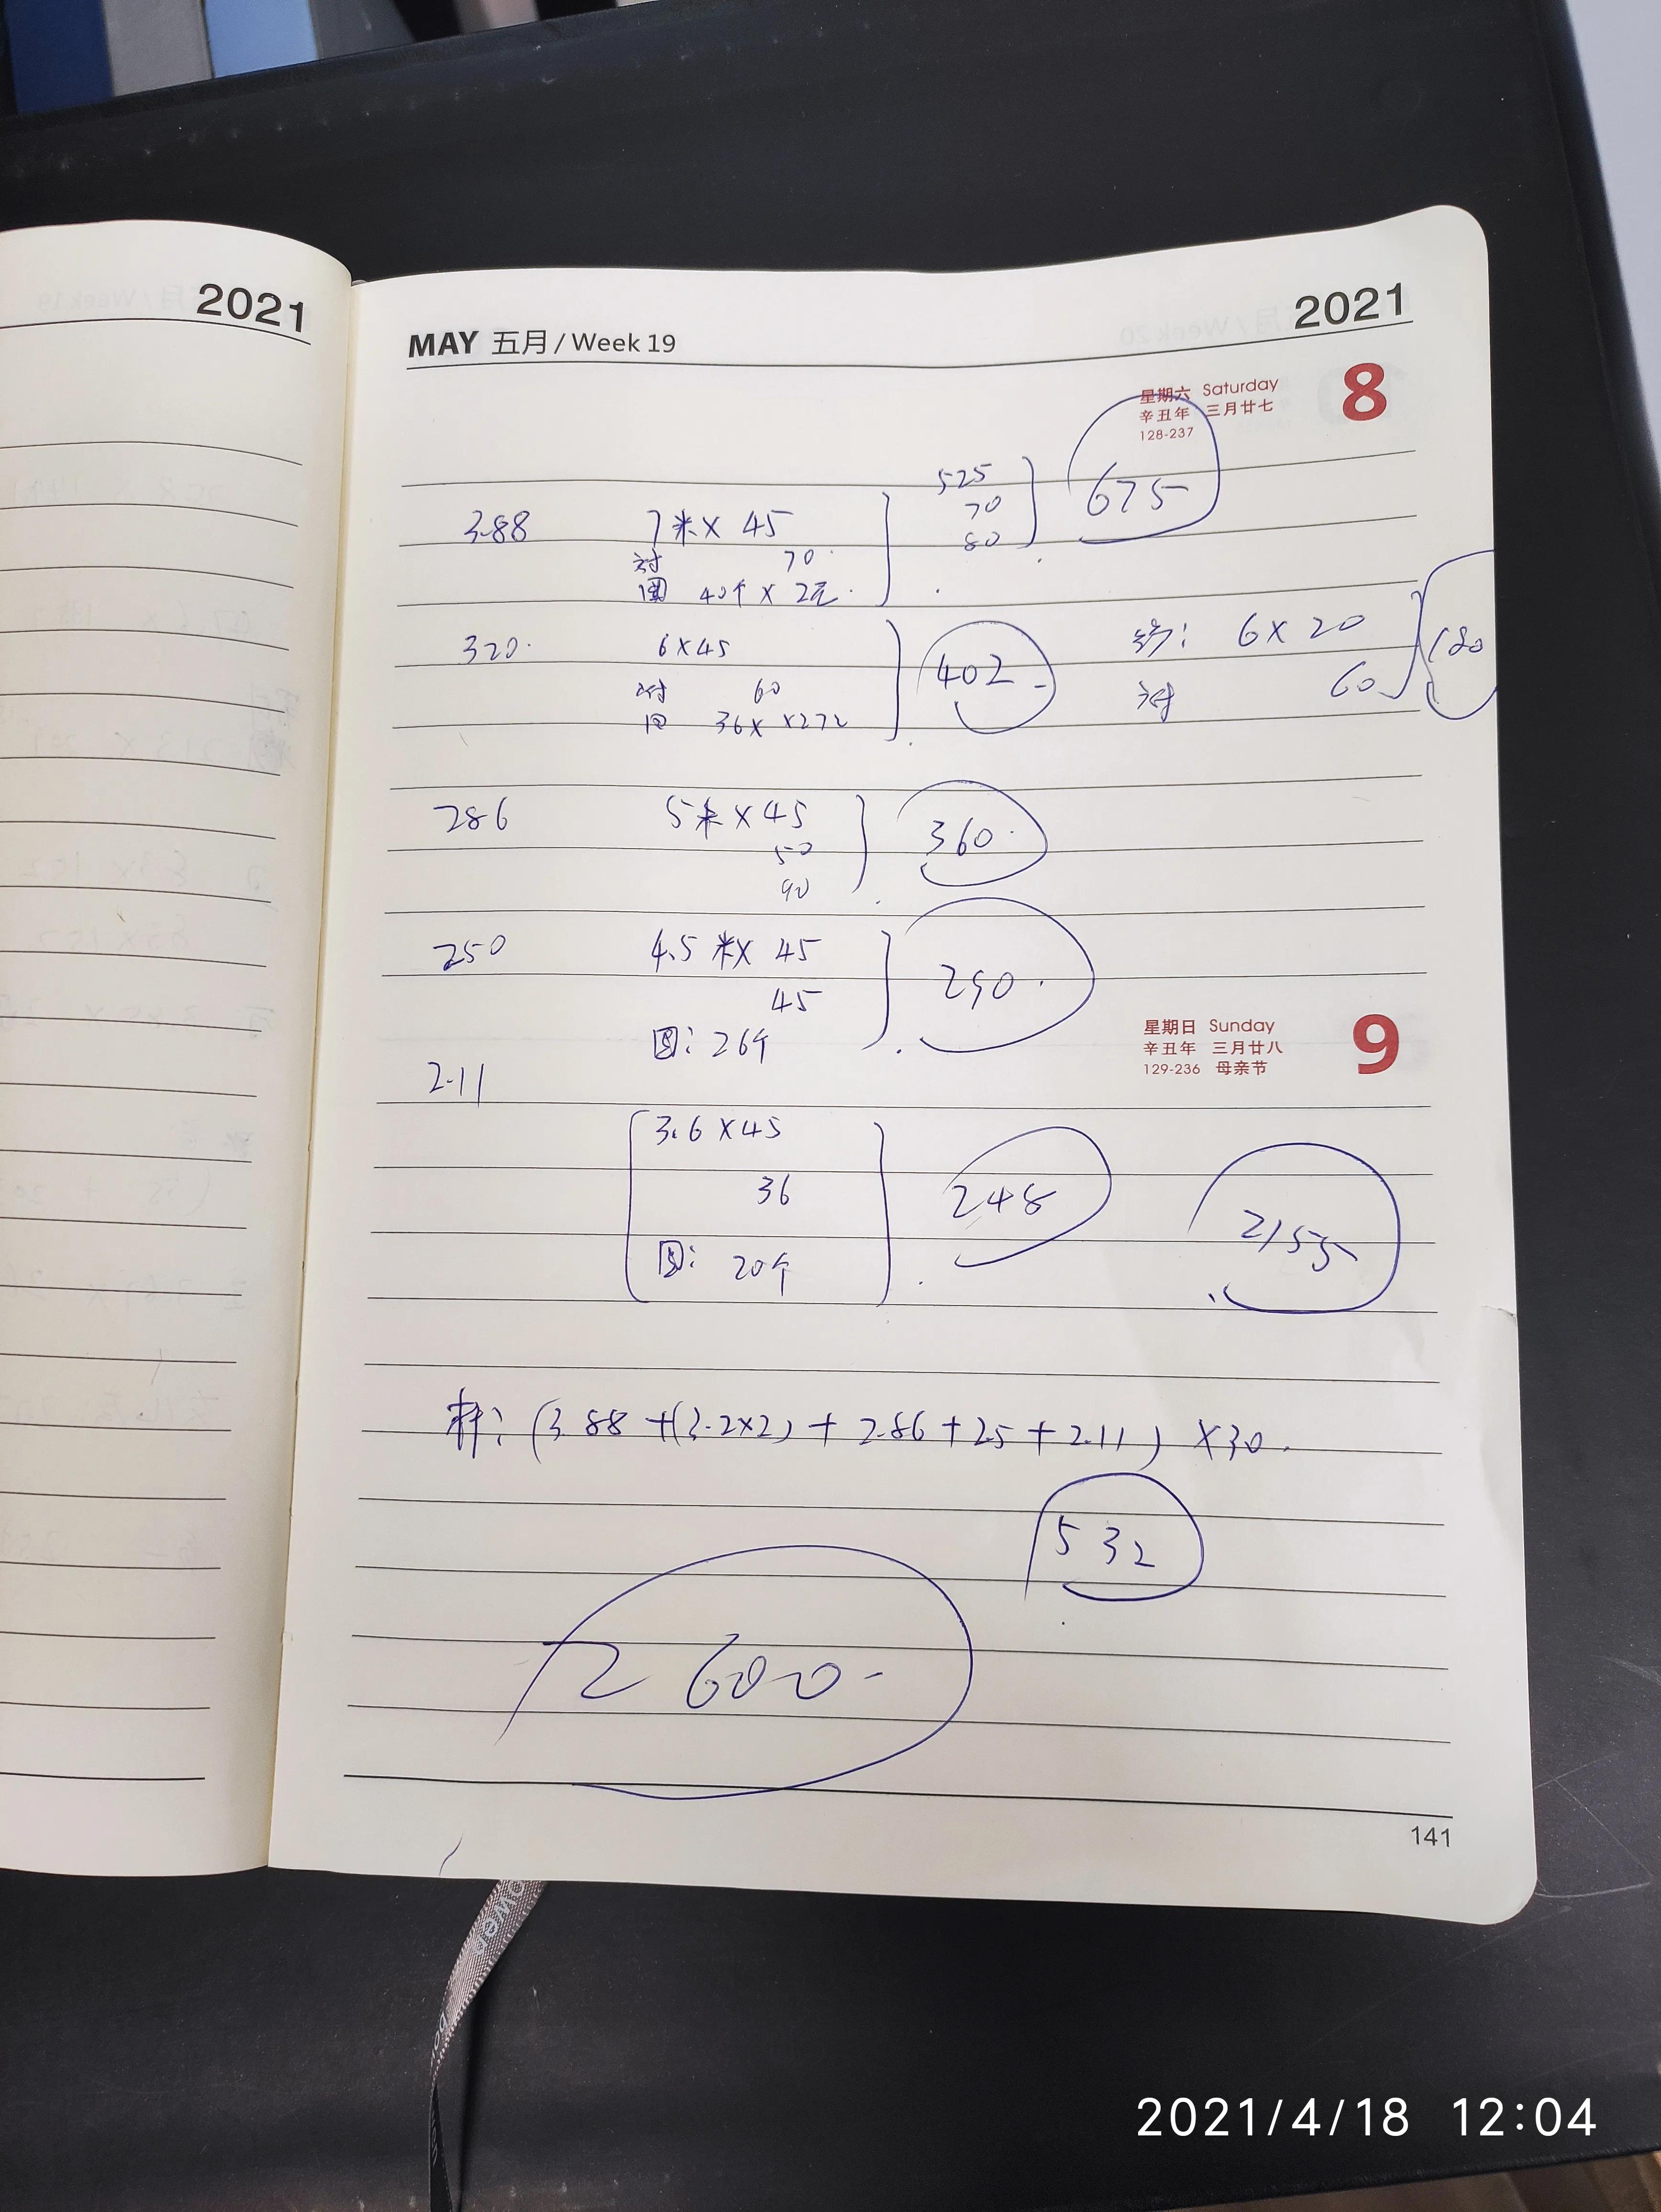 2021
MAY 五月 / Week 19
2021
星期六 Saturday
辛丑年 三月廿七
128-237
8
525
70
80
675
3.88 7米 X 45
衬 70
圆 40个 X 2元
320 6X45
衬 60
36X X2 72
402
纱: 6X20
衬 60
180
286 5米 X 45
50
90
360
250 4.5 米X 45
45
圆: 26个
290
星期日 Sunday
辛丑年 三月廿八
129-236 母亲节
9
2.11
3.6 X45
36
圆: 20个
248
2155
杆: (3.88 +(3.2X2) + 2.86 + 25 + 2.11) X30
532
2600
141
2021/4/18 12:04